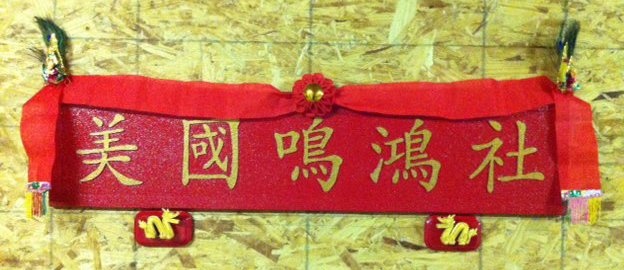 美國鳴鴻社